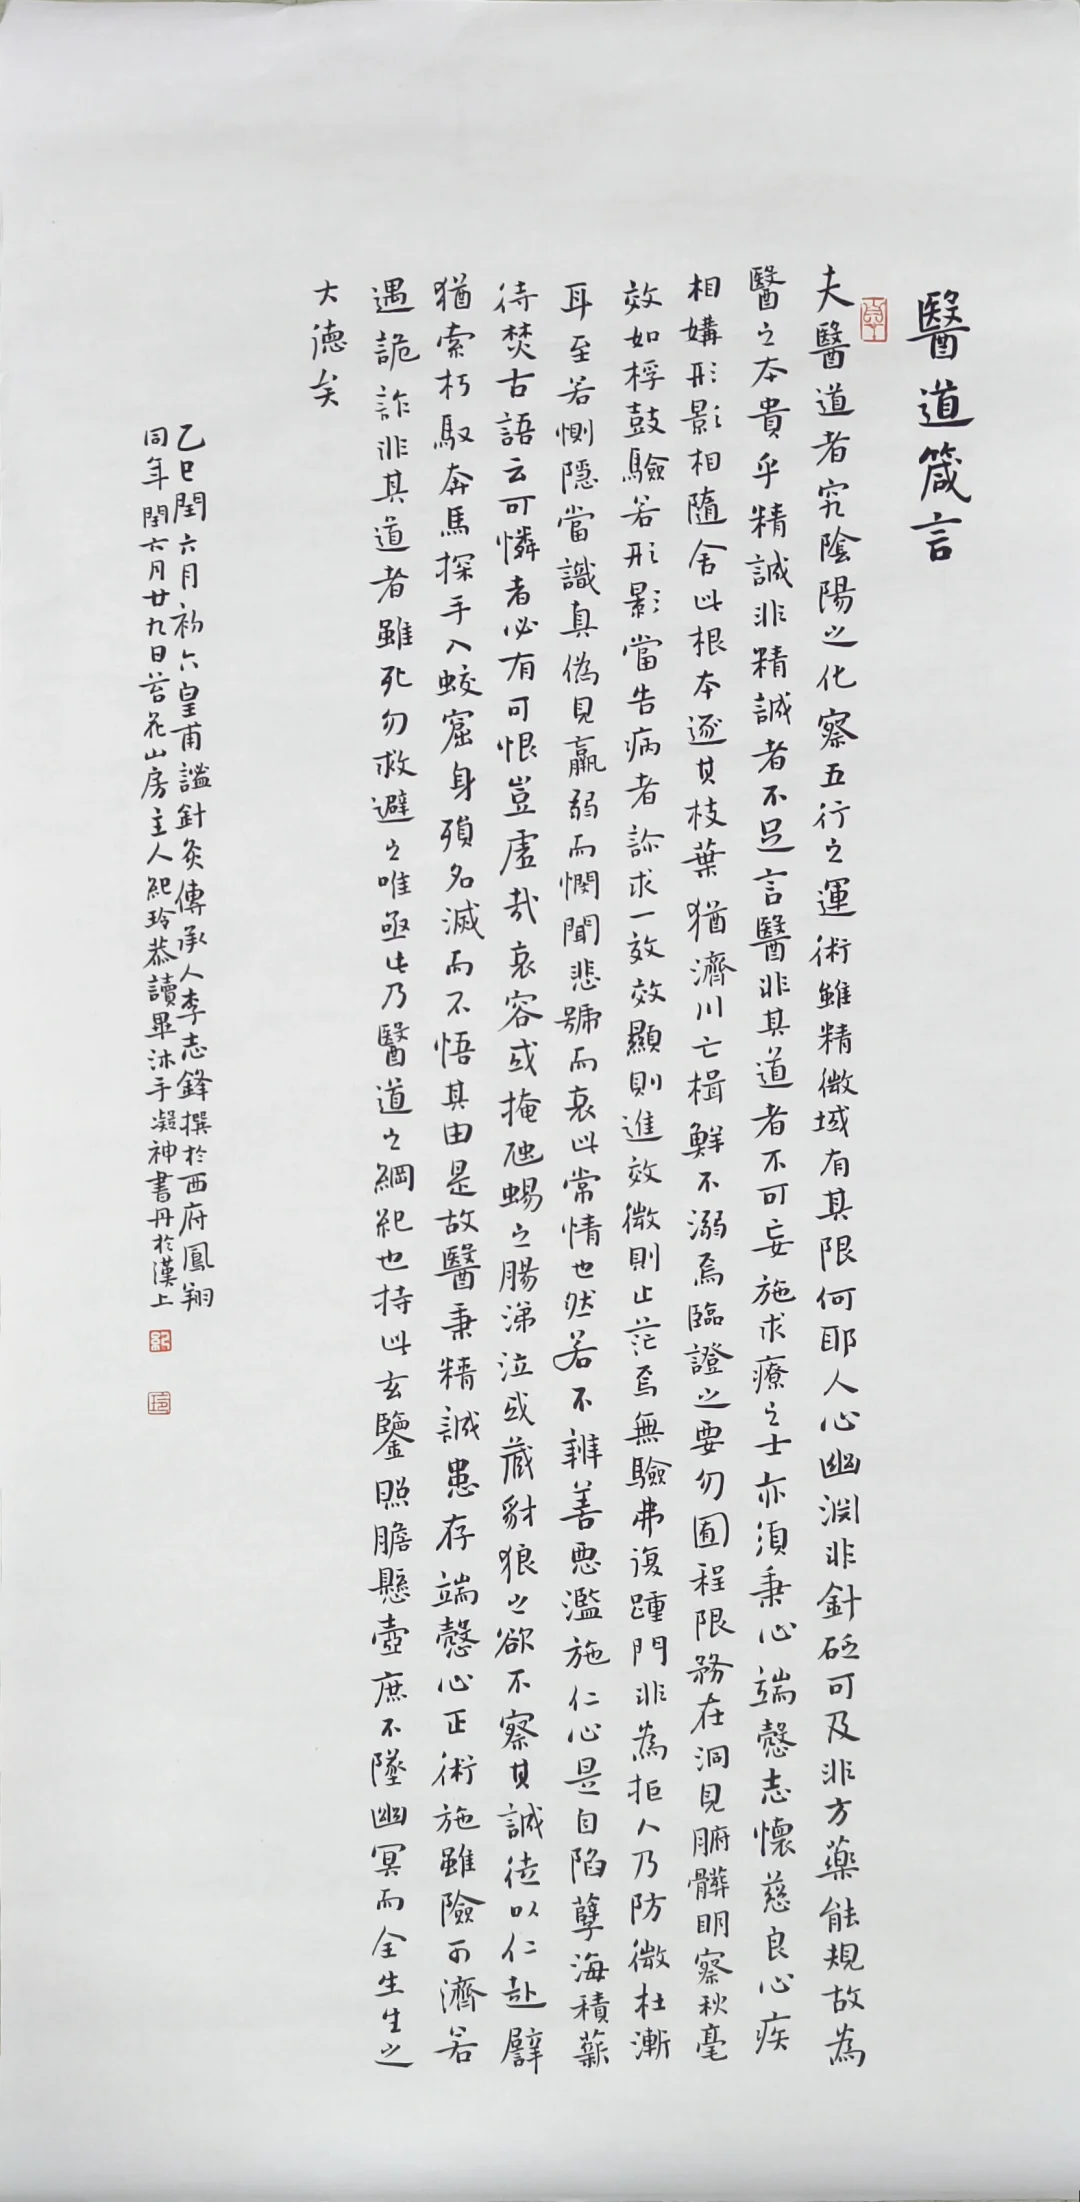 醫道箴言
夫醫道者究陰陽之化察五行之運術雖精微域有其限何耶人心幽渊非針砭可及非方藥能規故為
醫之本貴乎精誠非精誠者不足言醫非其道者不可妄施求療之士亦須秉心端慤志懷慈良心疾
相媾形影相隨舍此根本逐其枝葉猶濟川亡楫鮮不溺焉臨證之要勿囿程限務在洞見腑髒明察秋毫
效如桴鼓驗若形影當告病者診求一效效顯則進效微則止茫焉無驗弗復踵門非為拒人乃防微杜漸
耳至若惻隱當識真偽見羸弱而憫聞悲號而哀此常情也然若不辨善惡濫施仁心是自陷孽海積薪
待焚古語云可憐者必有可恨豈虛哉哀容或掩虺蜴之腸涕泣或藏豺狼之欲不察其誠徒以仁赴譬
猶索朽馭奔馬探手入蛟窟身殞名滅而不悟其由是故醫秉精誠患存端慤心正術施雖險可濟若
遇詭詐非其道者雖死勿救避之唯亟此乃醫道之綱紀也持此玄鑒照膽懸壺庶不墜幽冥而全生生之
大德矣
乙巳閏六月初六皇甫謐針灸傳承人李志鋒撰於西府鳳翔
同年閏六月廿九日苔花山房主人紀玲恭讀畢沐手凝神書丹於漢上
紀
玲